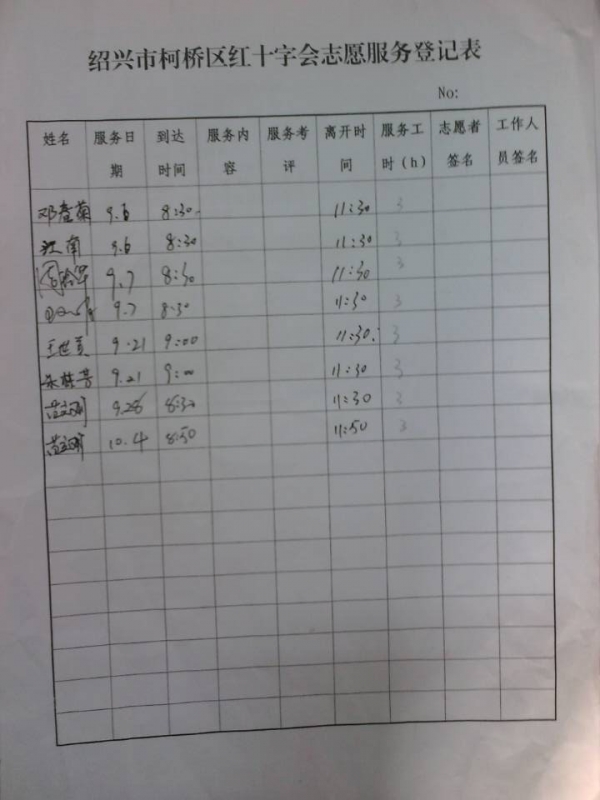 绍兴市柯桥区红十字会志愿服务登记表
No:
姓名 服务日期 到达时间 服务内容 服务考评 离开时间 服务工时（h） 志愿者签名 工作人员签名
9.6 8:30 11:30 3
9.6 8:30 11:30 3
9.7 8:30 11:30 3
9.7 8:30 11:30 3
9.21 9:00 11:30 3
9.21 9:00 11:30 3
9.28 8:30 11:30 3
10.4 8:50 11:50 3